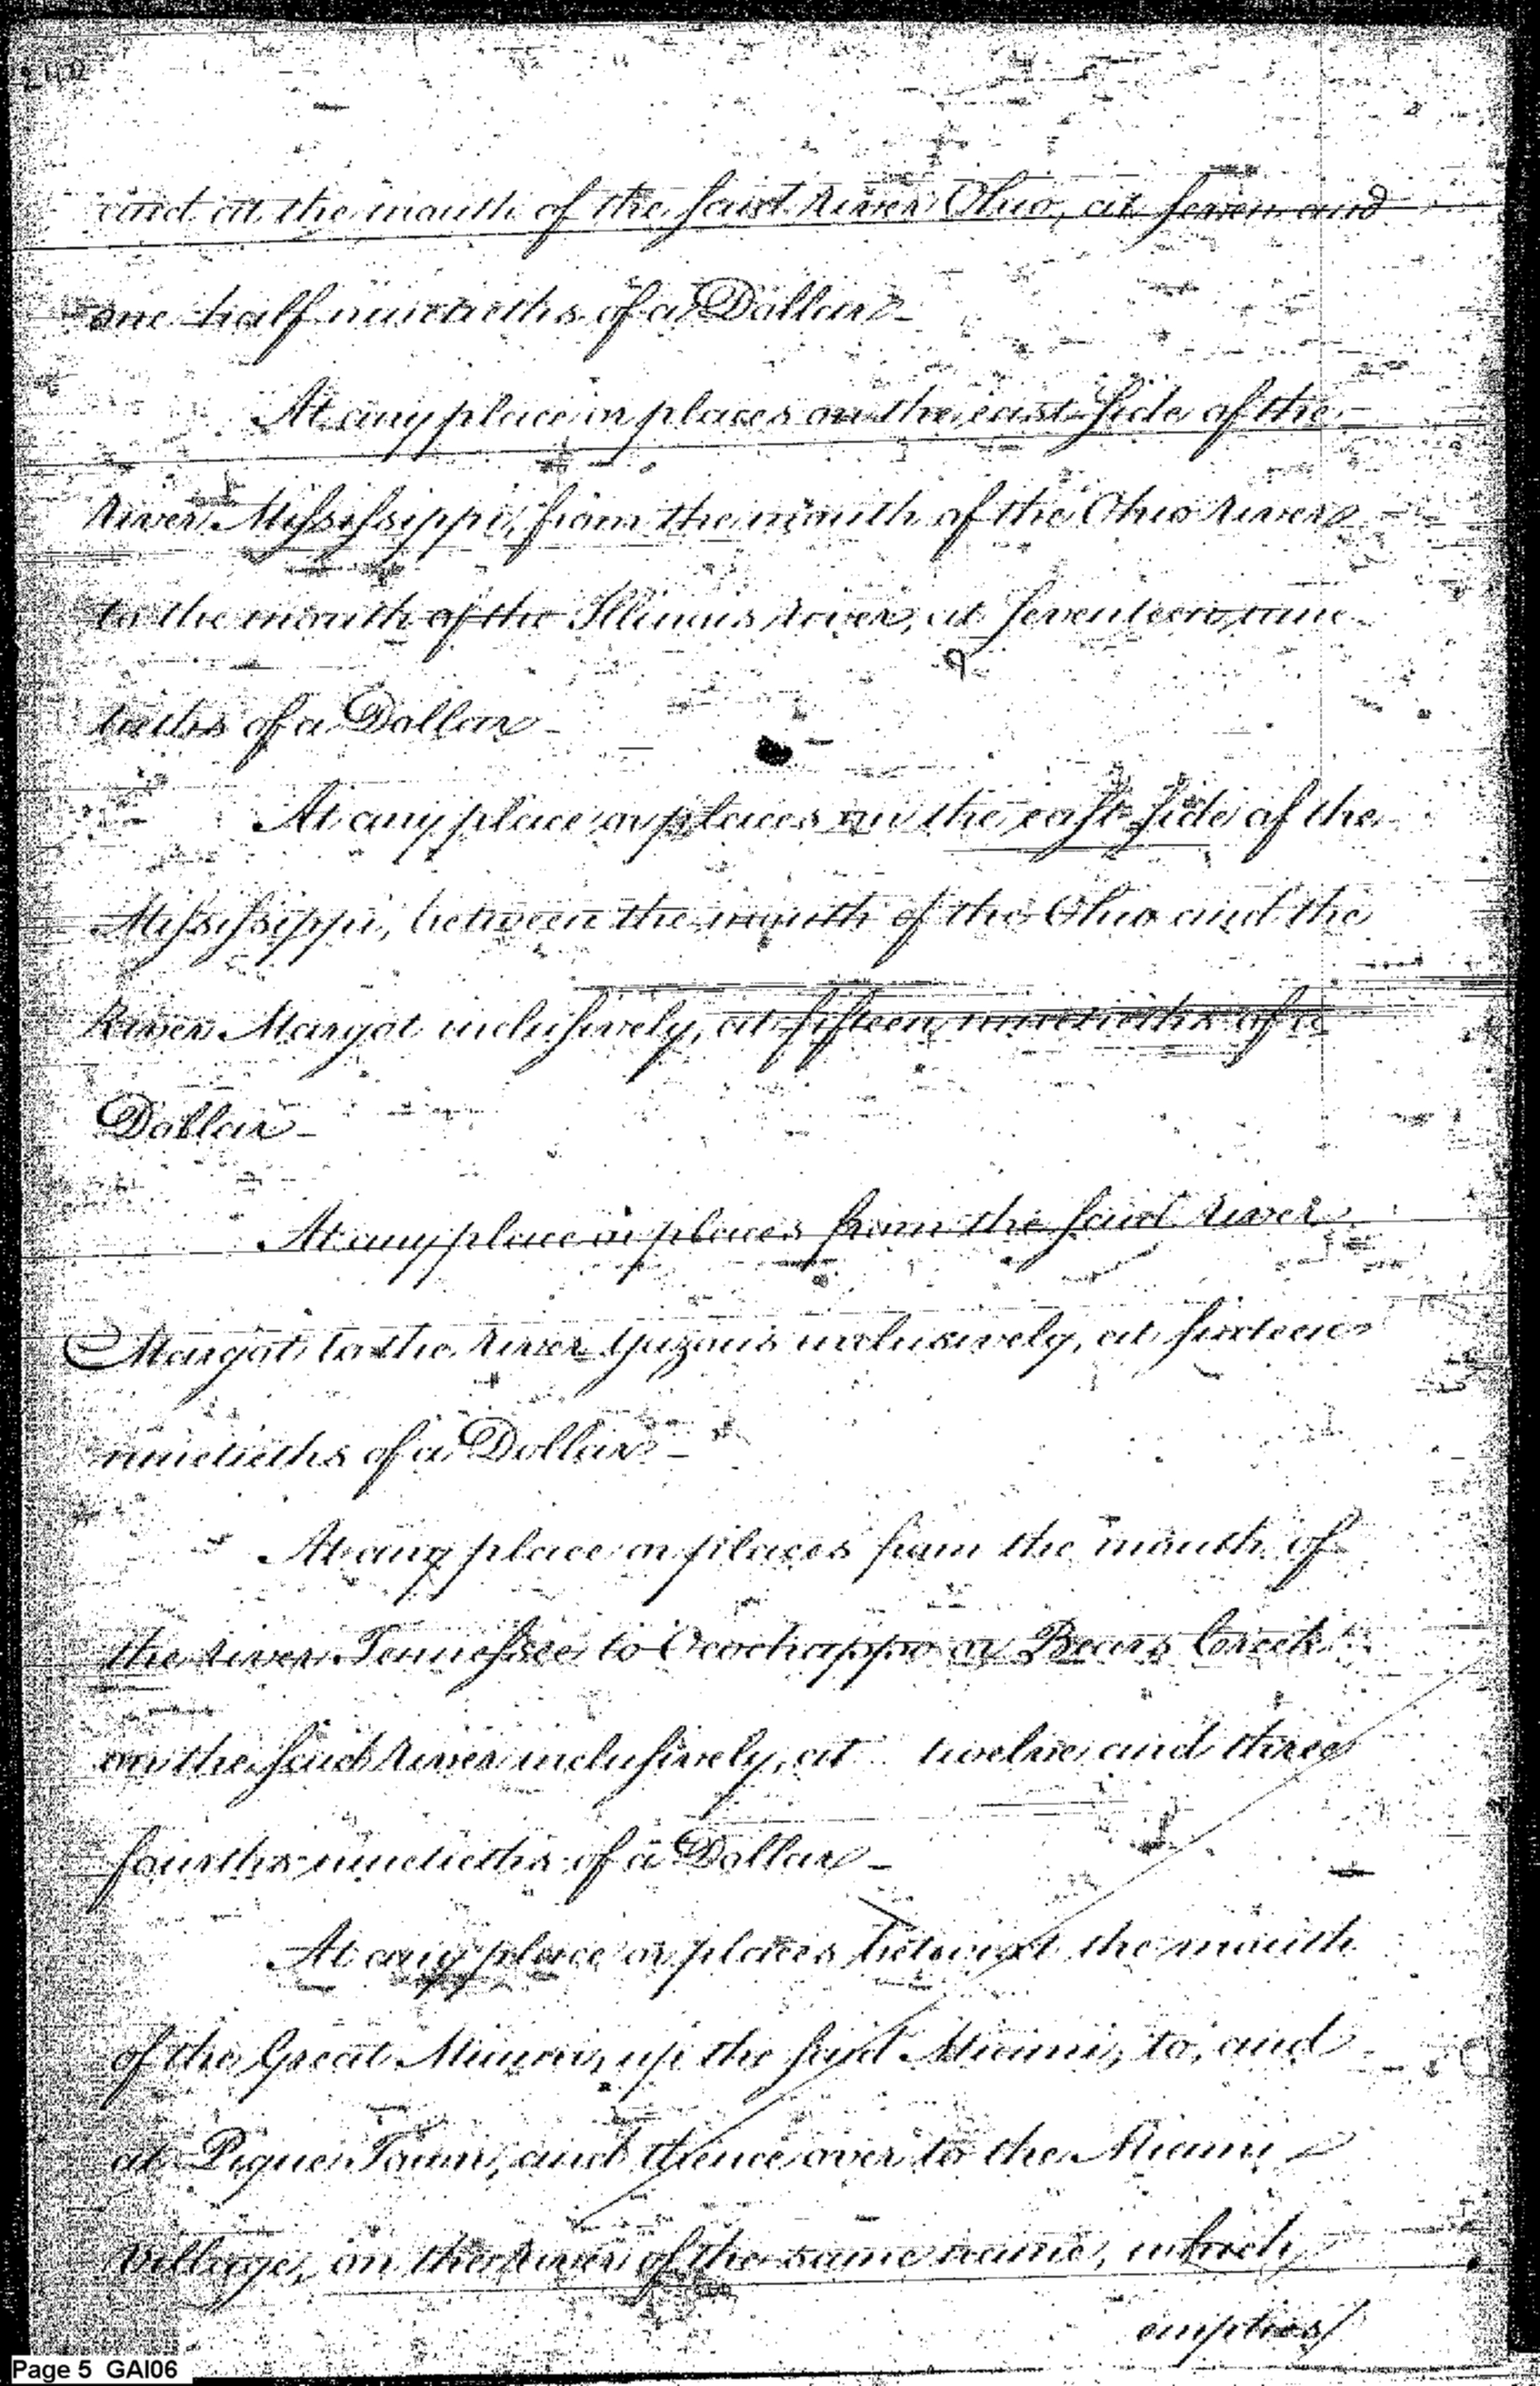 and at the mouth of the said river Ohio, at seven and
one half ninetieths of a Dollar -
At any place or places on the east side of the
river Mississippi, from the mouth of the Ohio river
to the mouth of the Illinois river, at seventeen nine
tieths of a Dollar -
At any place or places on the east side of the
Mississippi, between the mouth of the Ohio and the
River Margot inclusively, at fifteen ninetieths of a
Dollar -
At any place or places from the said river
Margot to the river Yazous inclusively, at sixteen
ninetieths of a Dollar -
At any place or places from the mouth of
the river Tennessee to Ocochappo or Bears Creek
on the said river inclusively, at twelve and three
fourths ninetieths of a Dollar -
At any place or places betwixt the mouth
of the Great Miami, up the said Miami, to, and
at Pique Town, and thence over to the Miami
Village, on the river of the same name, which
empties/
Page 5 GAI06